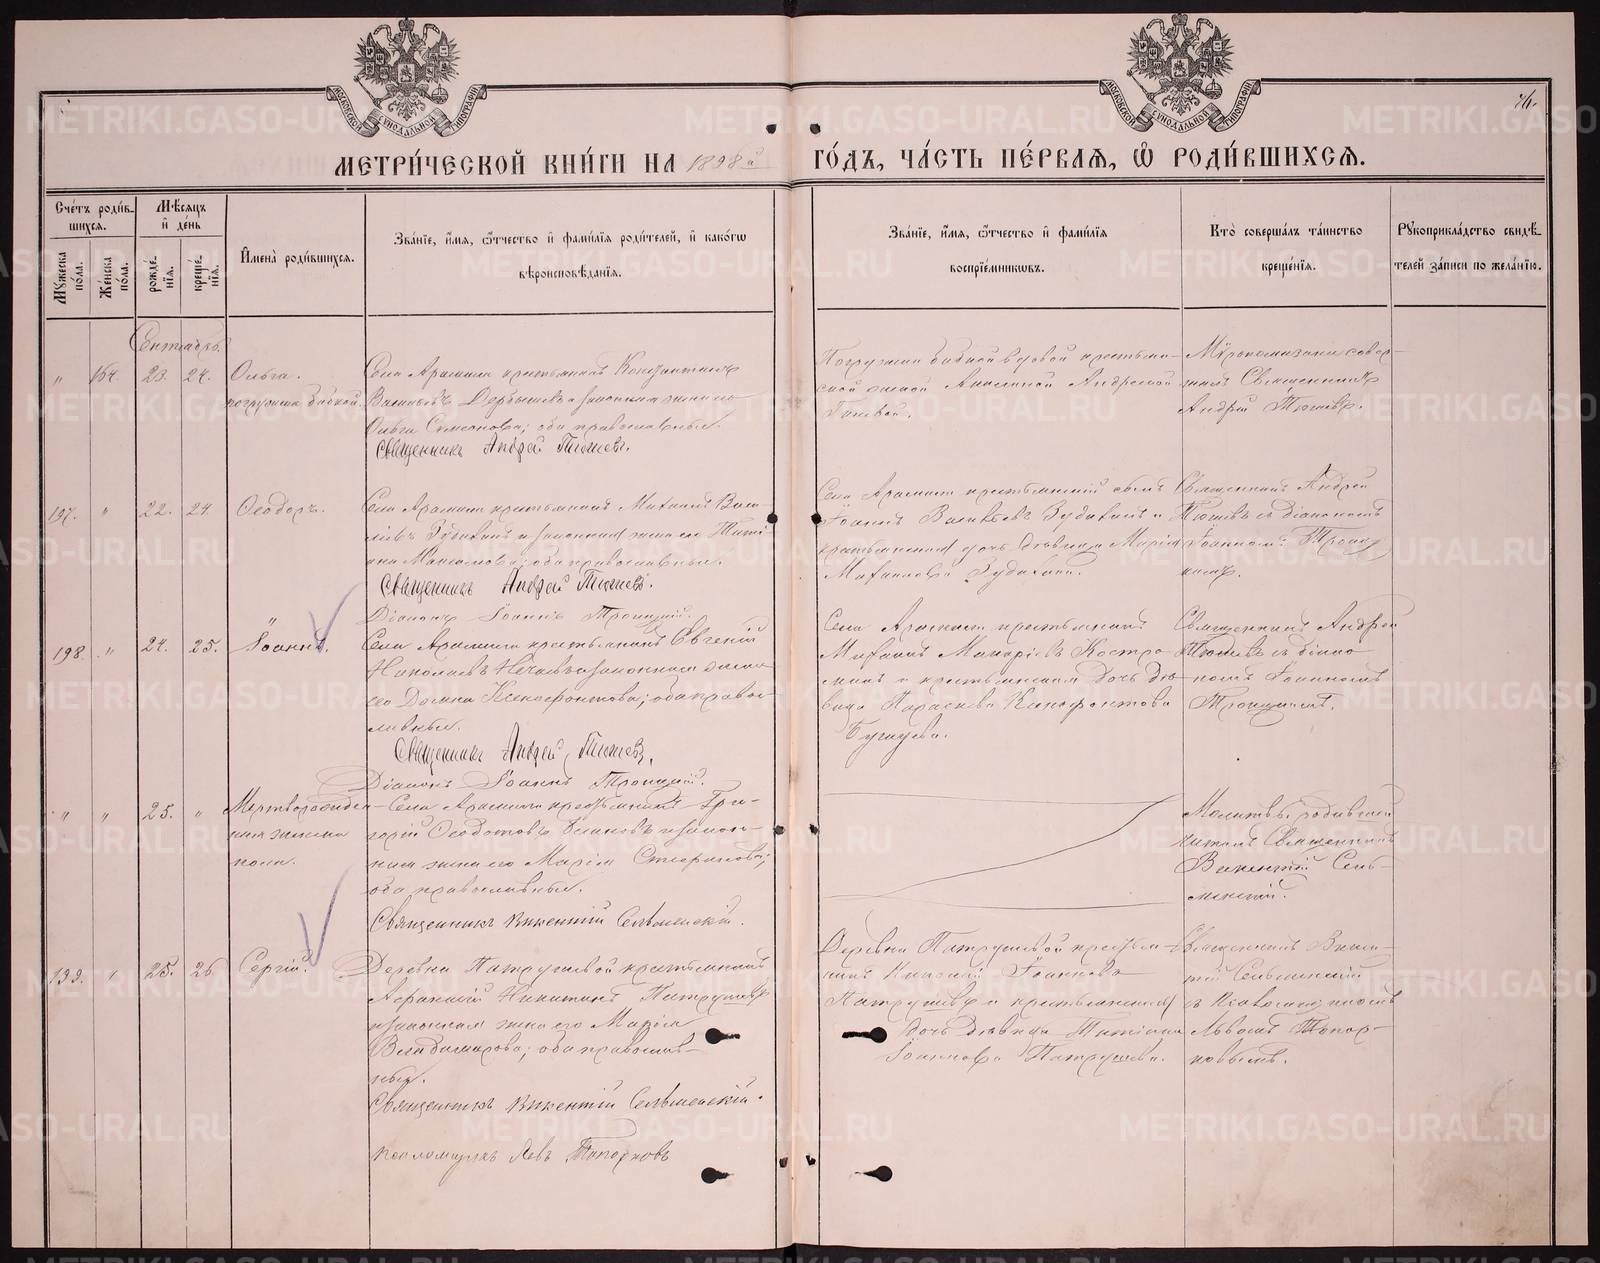 МОСКОВСКОЙ СѴНОДАЛЬНОЙ ТИПОГРАФІИ
МОСКОВСКОЙ СѴНОДАЛЬНОЙ ТИПОГРАФІИ
МЕТРИ́ЧЕСКОЙ КНИ́ГИ НА 1898й ГО́ДЪ, ЧА́СТЬ ПЕ́РВАЯ, Ѽ РОДИ́ВШИХСЯ.
Сче́тъ роди́вшихся.
Мꙋжеска по́ла.
Же́нска по́ла.
Мѣсяцъ и҆ де́нь
рожде́нїя.
креще́нїя.
И҆мена̀ роди́вшихся.
Зва́нїе, и҆́мя, ѻ҆́тчество и҆ фами́лїя роди́телей, и҆ како́гѡ
вѣроисповѣ́данїя.
Зва́нїе, и҆́мя, ѻ҆́тчество и҆ фами́лїя
воспрїе́мникѡвъ.
Кто̀ соверша́лъ та́инство
креще́нїя.
Рꙋкоприкла́дство свидѣ́-
телей за́писи по жела́нїю.
Сентябрь.
" 164. 23. 24. Ольга.
погружена бабкой.
Села Арамили крестьянинъ Константинъ
Васильевъ Дербышевъ и законная жена его
Ольга Симеонова; оба православные.
Священникъ Андрей Тюшевъ.
Погружена бабкой вдовой крестьян-
ской женой Андреевой
Мѵропомазаніе совер-
шалъ Священникъ
Андрей Тюшевъ.
197. " 22. 24. Ѳеодоръ.
Села Арамили крестьянинъ Михаилъ Васи-
льевъ и законная жена его Тати-
ана Максимова; оба православные.
Священникъ Андрей Тюшевъ.
Діаконъ Іоаннъ Троицкій.
Села Арамили крестьянскій сынъ
Іоаннъ Васильевъ и
крестьянская дочь дѣвица Марія
Михаилова
Священникъ Андрей
Тюшевъ съ діакономъ
Іоанномъ Троиц-
кимъ.
198. " 24. 25. Іоаннъ.
Села Арамили крестьянинъ Евгеній
Николаевъ и законная жена
его Домна Ксенофонтова; оба правос-
лавные.
Священникъ Андрей Тюшевъ.
Діаконъ Іоаннъ Троицкій.
Села Арамили крестьянинъ
Михаилъ Макаріевъ Костро-
минъ и крестьянская дочь дѣ-
вица Параскева Ксенофонтова
Священникъ Андрей
Тюшевъ съ діако-
номъ Іоанномъ
Троицкимъ.
" " 25. " Мертворожден-
ная женска
пола.
Села Арамили крестьянинъ Гри-
горій Ѳеодотовъ и закон-
ная жена его Марія Стефанова;
оба православные.
Священникъ Викентій Сельменскій.
Молитвы родившей
читалъ Священникъ
Викентій Сель-
менскій.
199. " 25. 26. Сергій.
Деревни Патрушевой крестьянинъ
Никитинъ Патрушевъ
и законная жена его Марія
Владимірова; оба православ-
ные.
Священникъ Викентій Сельменскій.
Псаломщикъ Левъ Топорковъ
Деревни Патрушевой крестья-
нинъ Іоанновъ
Патрушевъ и крестьянская
дочь дѣвица Татіана
Іоаннова Патрушева.
Священникъ Викен-
тій Сельменскій
съ псаломщикомъ
Львомъ Топор-
ковымъ.
METRIKI.GASO-URAL.RU